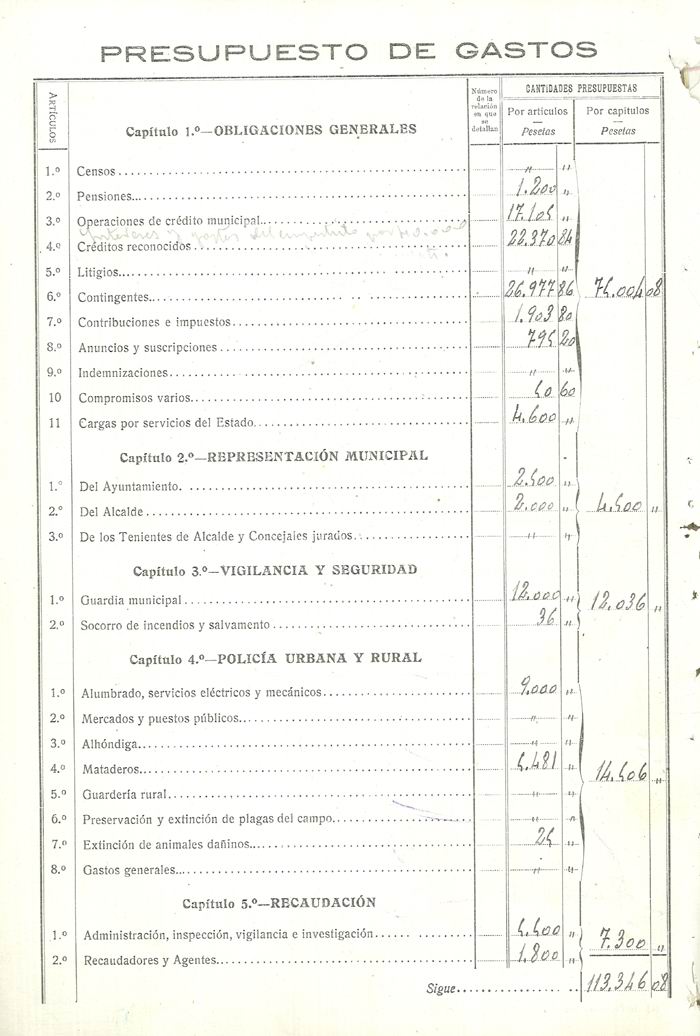 PRESUPUESTO DE GASTOS
ARTÍCULOS
Capítulo 1.º—OBLIGACIONES GENERALES
Número de la relación en que se detallan
CANTIDADES PRESUPUESTAS
Por artículos — Pesetas
Por capítulos — Pesetas
1.º Censos „ „
2.º Pensiones 1.200 „
3.º Operaciones de crédito municipal 17.105 „
Intereses y gastos del emprestito por
4.º Créditos reconocidos 22.370 84
5.º Litigios „ „
6.º Contingentes 26.977 86 75.004 08
7.º Contribuciones e impuestos 1.903 80
8.º Anuncios y suscripciones 795 20
9.º Indemnizaciones „ „
10 Compromisos varios 50 60
11 Cargas por servicios del Estado 4.600 „
Capítulo 2.º—REPRESENTACIÓN MUNICIPAL
1.º Del Ayuntamiento. 2.500 „
2.º Del Alcalde 2.000 „ 4.500 „
3.º De los Tenientes de Alcalde y Concejales jurados „ „
Capítulo 3.º—VIGILANCIA Y SEGURIDAD
1.º Guardia municipal 12.000 „ 12.036 „
2.º Socorro de incendios y salvamento 36 „
Capítulo 4.º—POLICÍA URBANA Y RURAL
1.º Alumbrado, servicios eléctricos y mecánicos 9.000 „
2.º Mercados y puestos públicos „ „
3.º Alhóndiga „ „
4.º Mataderos 5.481 „ 14.506 „
5.º Guardería rural „ „
6.º Preservación y extinción de plagas del campo „ „
7.º Extinción de animales dañinos 25 „
8.º Gastos generales „ „
Capítulo 5.º—RECAUDACIÓN
1.º Administración, inspección, vigilancia e investigación 5.500 „ 7.300 „
2.º Recaudadores y Agentes 1.800 „
Sigue 113.346 08